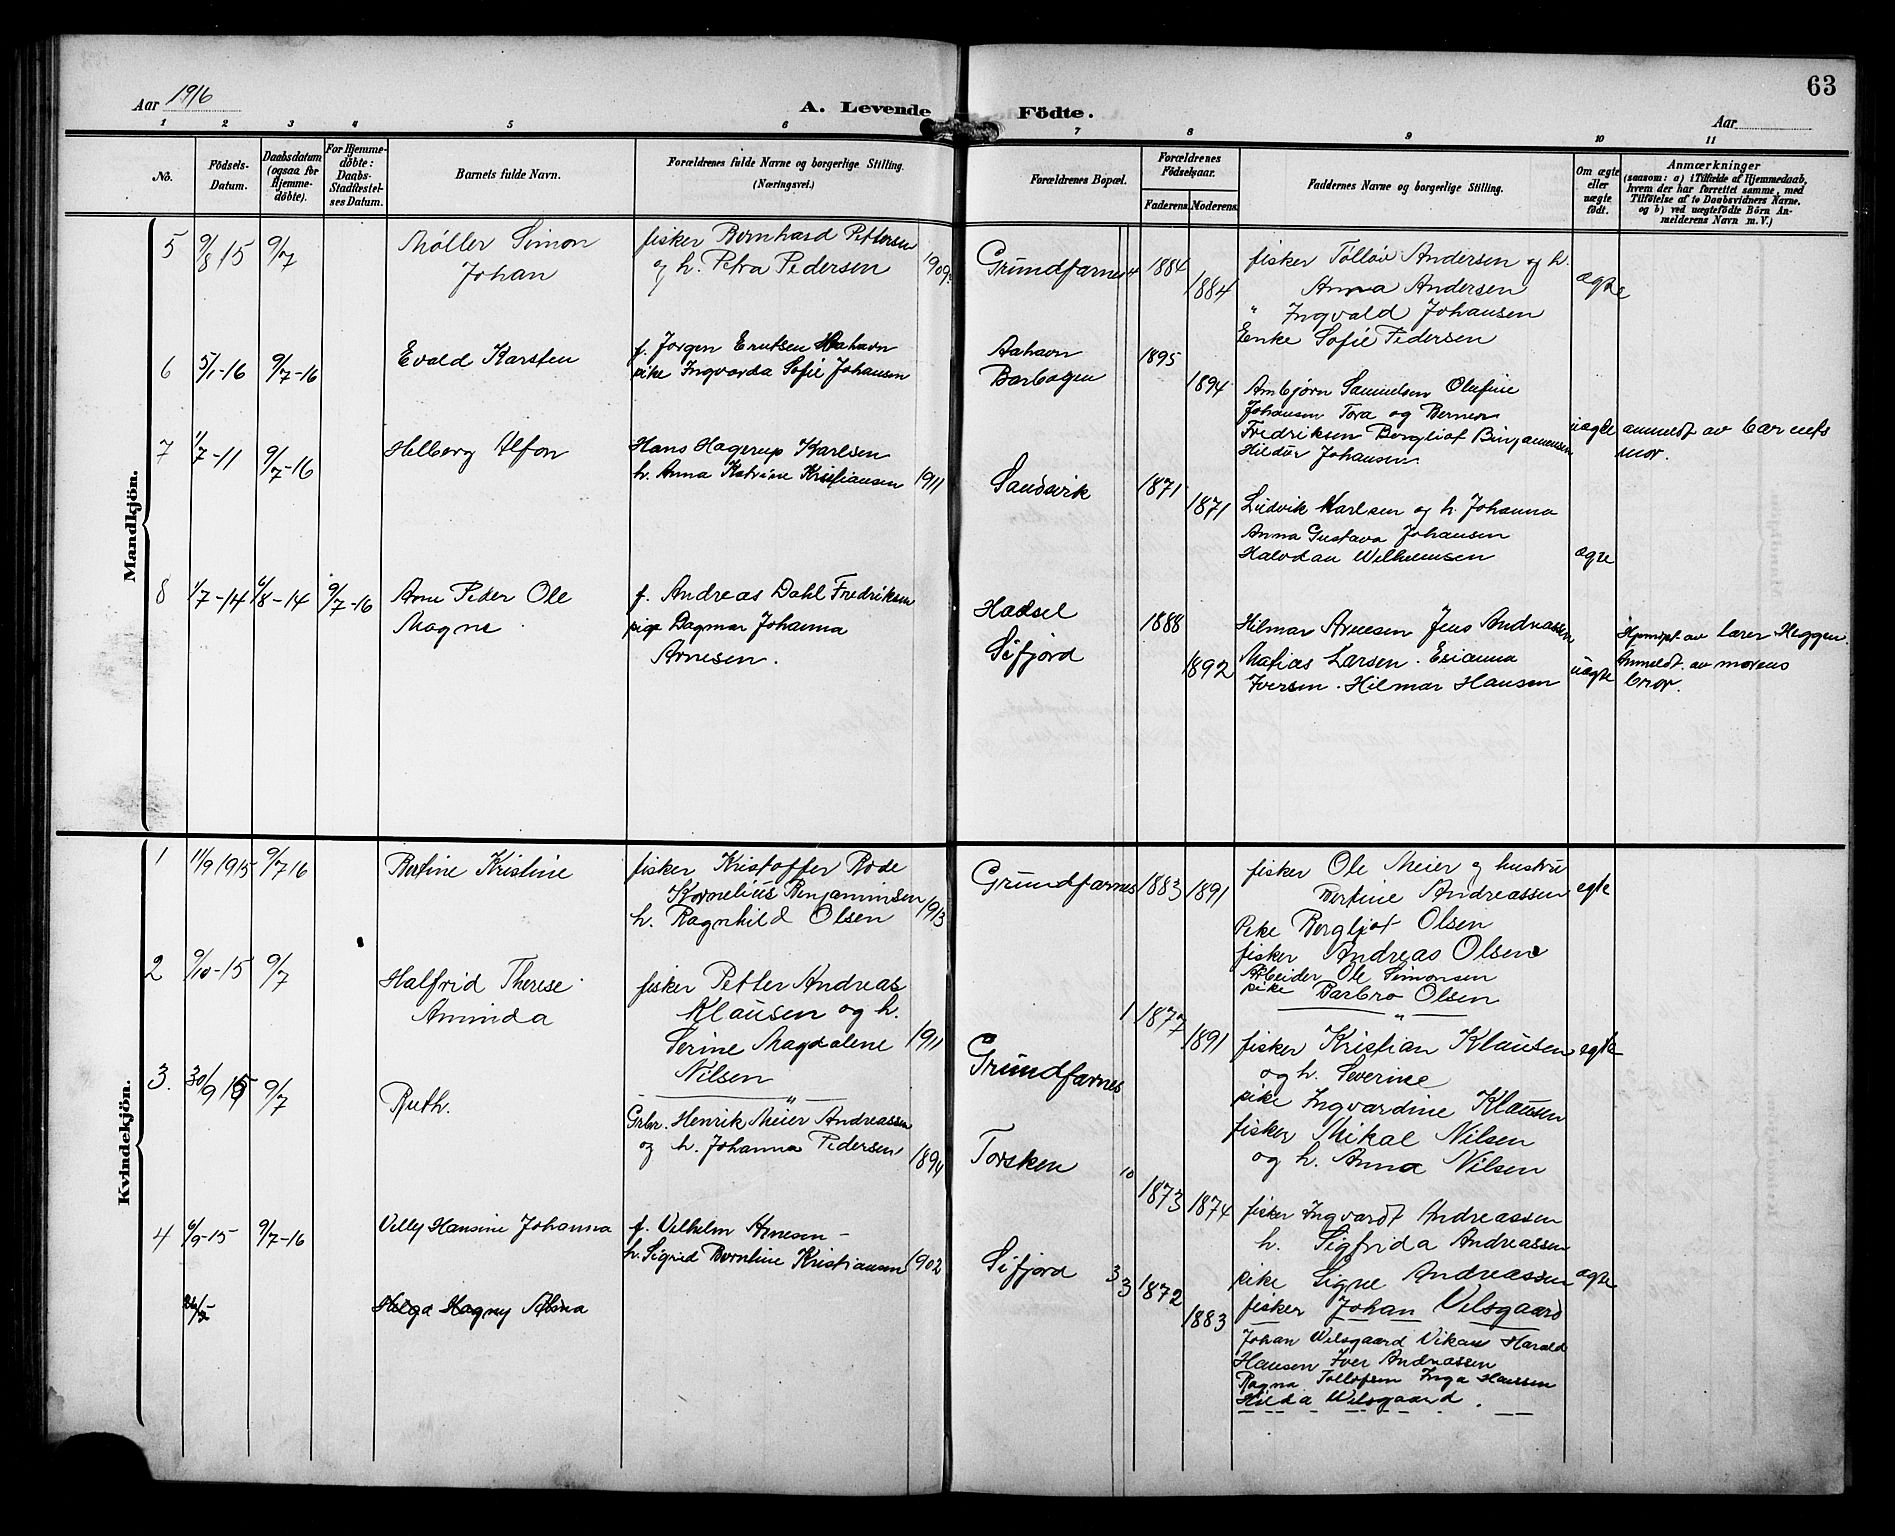 63
Aar 1916
A. Levende Födte.
Aar
1 2 3 4 5 6 7 8 9 10 11
No.
Födsels-Datum.
Daabsdatum (ogsaa for Hjemme-döbte).
For Hjemme-döbte: Daabs-Stadfæstel-ses Datum.
Barnets fulde Navn.
Forældrenes fulde Navne og borgerlige Stilling.
(Næringsvei.)
Forældrenes Bopæl.
Forældrenes Födselsaar.
Faderens. Moderens.
Faddernes Navne og borgerlige Stilling.
Om ægte eller uægte födt.
Anmærkninger
(saasom: a) i Tilfælde af Hjemmedaab,
hvem der har forrettet samme, med
Tilföielse af to Daabsvidners Navne,
og b) ved uægtefödte Börn An-
melderens Navn m. V.)
Mandkjön.
5 9/8 15 9/7 Møller Simon
Johan
fisker Bernhard Pettersen
og h. Petra Pedersen 1909
Grundfarnes 4 1884
1884
fisker Tølløv Andersen og h.
Anna Andersen
" Ingvald Johansen
Enke Sofie Pedersen
ægte
6 5/1-16 9/7-16 Evald Karsten
f. Jørgen Erntsen Aahavn
pike Ingvarda Sofie Johansen
Aahavn
Barbogen
1895
1894
Arnbjørn Samuelsen Olufine
Johansen Tora og Berner
Fredriksen Bergliot Binjaminsen
Hildur Johansen.
uægte
anmeldt av barnets
mor.
7 1/7-11 9/7-16 Helberg Alfon
Hans Hagerup Karlsen
h. Anna Katrine Kristiansen 1911
Sandsvik 1871
1871
Ludvik Karlsen og h. Johanna
Anna Gustava Johansen
Halvdan Wilhelmsen
ægte
8 1/7-14 6/8-14 9/7-16 Arne Peder Ole
Magne
f. Andreas Dahl Fredriksen
pige Dagmar Johanna
Arnesen.
Hadsel
Sifjord
1888
1892
Hilmar Arnesen Jens Andreassen
Matias Larsen. Esianna
Iversen. Hilmar Hansen
uægte
Hjemdøpt av lærer Heggen.
Anmeldt av morens
bror.
Kvindekjön.
1 11/9 1915 9/7 16 Bertine Kristine
fisker Kristoffer Rode
Kornelius Benjaminsen
h. Ragnhild Olsen 1913
Grundfarnes 1883 1891
fisker Ole Meier og hustru
Bertine Andreassen
Pike Bergljot Olsen
fisker Andreas Olsen
Arbeider Ole Simonsen
pike Barbro Olsen
egte
2 9/10-15 9/7 Halfrid Therese
Aminda
fisker Petter Andreas
Klausen og h.
Serine Magdalene 1911
Nilsen
Grundfarnes
1 1877
1891
fisker Kristian Klausen
og h. Severine
pike Ingvardine Klausen
fisker Mikal Nilsen
og h. Anna Nilsen
egte
3. 30/9 15 9/7 Ruth.
Grbr. Henrik Meier Andreassen
og h. Johanna Pedersen 1894
Torsken 10 1873 1874
fisker Ingvardt Andreassen
h. Sigfrida Andreassen
pike Signe Andreassen
fisker Johan Velsgaard
4 6/9-15 9/7-16 Velly Hansine Johanna
f. Vilhelm Arnesen -
h. Sigrid Berntine Kristiansen 1902
Sifjord 3 3 1872
1883
ægte
Johan Wilsgaard Vikan Harald
Hansen Iver Andreassen
Ragna Tollofsen Inga Hansen
Hilda Wilsgaard.
Helga Hagny Albina